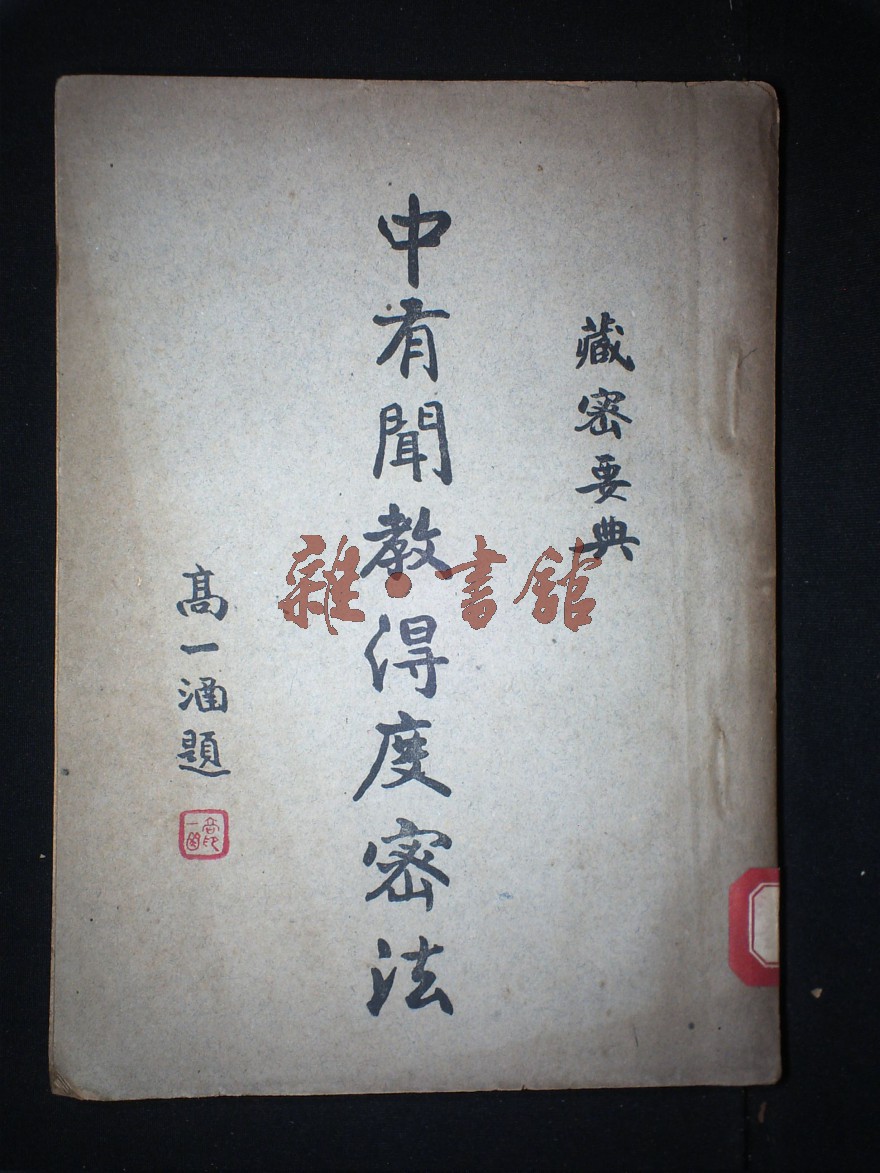 藏密要典
中有聞教得度密法
高一涵題
雜·書館